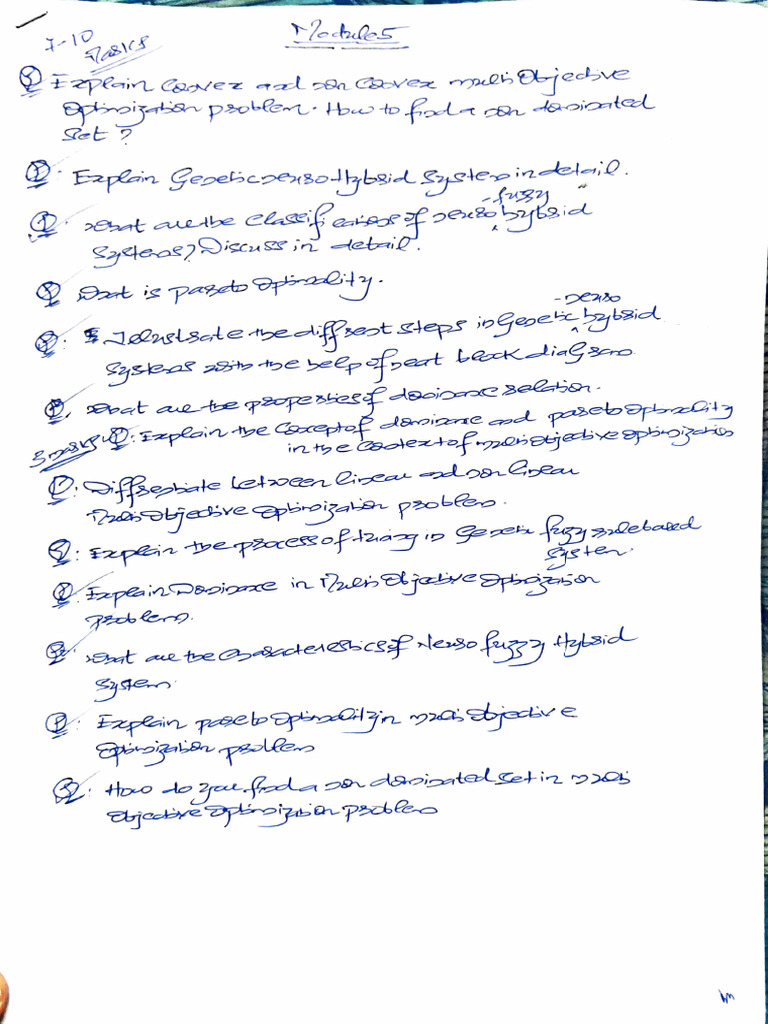 Module 5
7-10
Marks
Q Explain Convex and non Convex multi Objective
Optimization problem. How to find a non dominated
set ?
Q. Explain Genetic neuro-Hybrid Systems in detail.
- fuzzy
Q. What are the Classifications of neuro hybrid
Systems? Discuss in detail.
Q What is pareto Optimality.
- neuro
Q. Illustrate the different steps in Genetic hybrid
systems with the help of neat block diagram
Q. What are the properties of dominance relation.
3 marks Q. Explain the Concept of dominance and pareto Optimality
in the Context of multi Objective Optimization
Q. Differentiate between linear and non linear
Multi Objective Optimization problem.
Q. Explain the process of tuning in Genetic fuzzy rule based
system.
Q. Explain Dominance in Multi Objective Optimization
problem.
Q. What are the Characteristics of Neuro fuzzy Hybrid
System
Q. Explain pareto Optimality in multi Objective
Optimization problem
Q. How do you find a non dominated set in multi
Objective Optimization problem